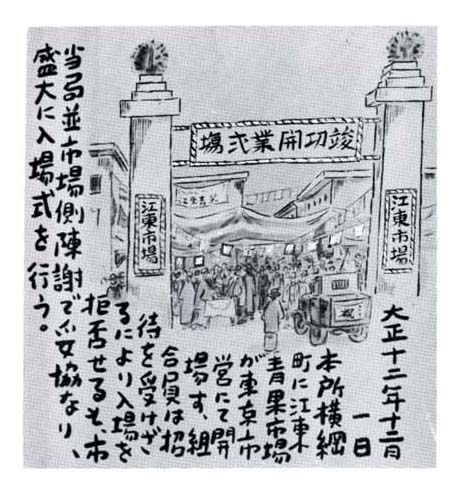 竣功開業式塲
江東市場
江東市場
祝
大正十二年十二月
一日
本所横網
町に江東
青果市場
が東京市
営にて開
場す、組
合員は招
待を受けざ
るにより入場を
拒否せるも、市
当局並市場側陳謝で妥協なり、
盛大に入場式を行う。